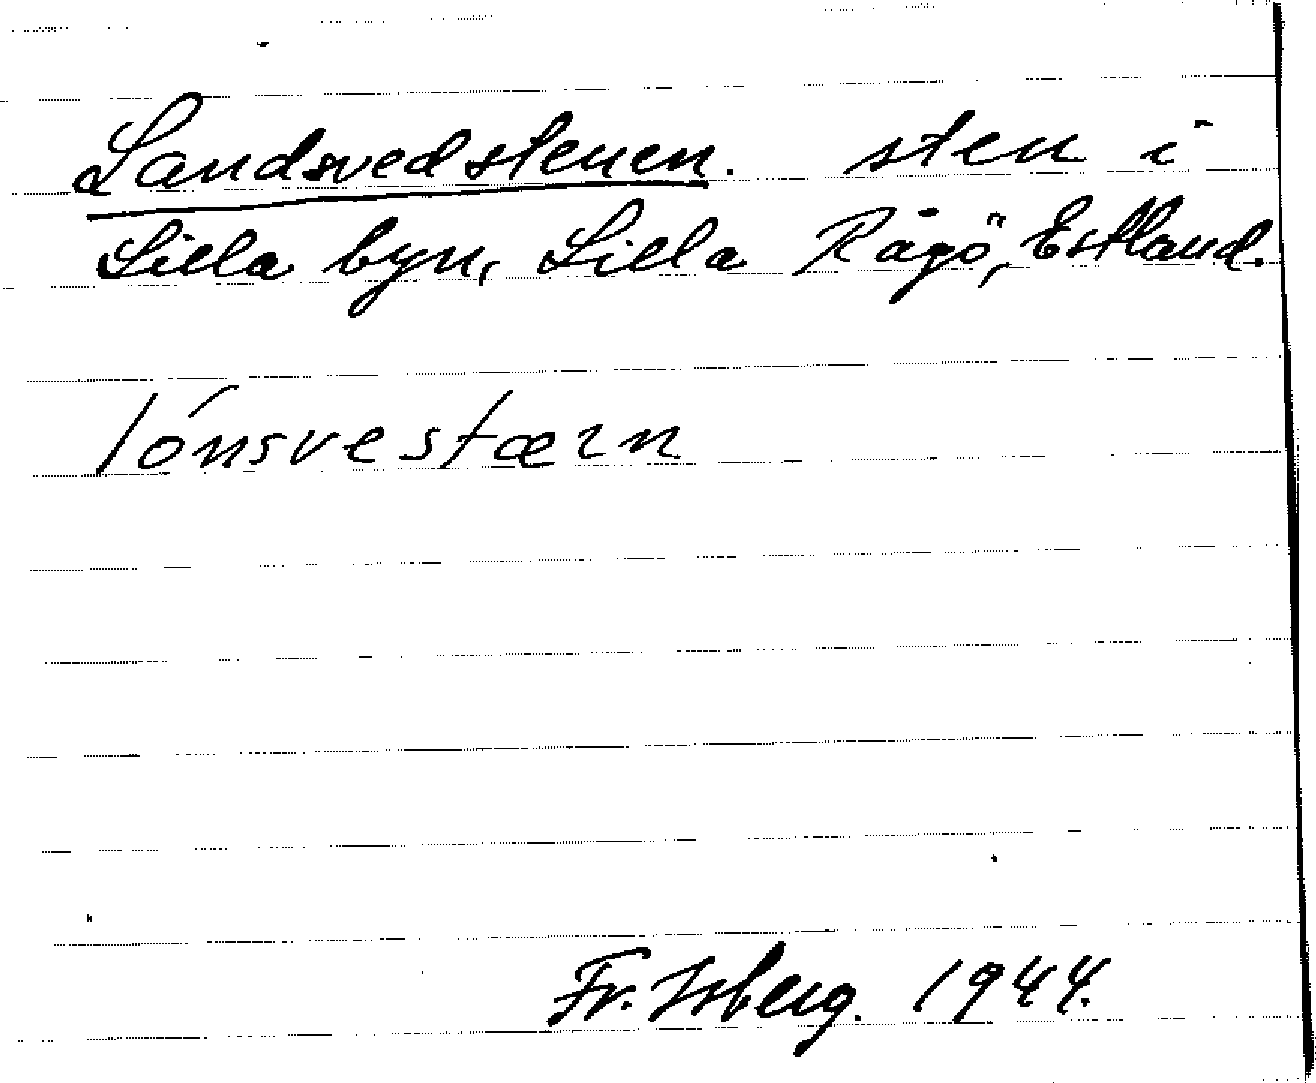 Landsvedstenen. sten i
Lilla byn, Lilla Rågö, Estland.
lónsvestæzn
Fr. Isberg. 1944.